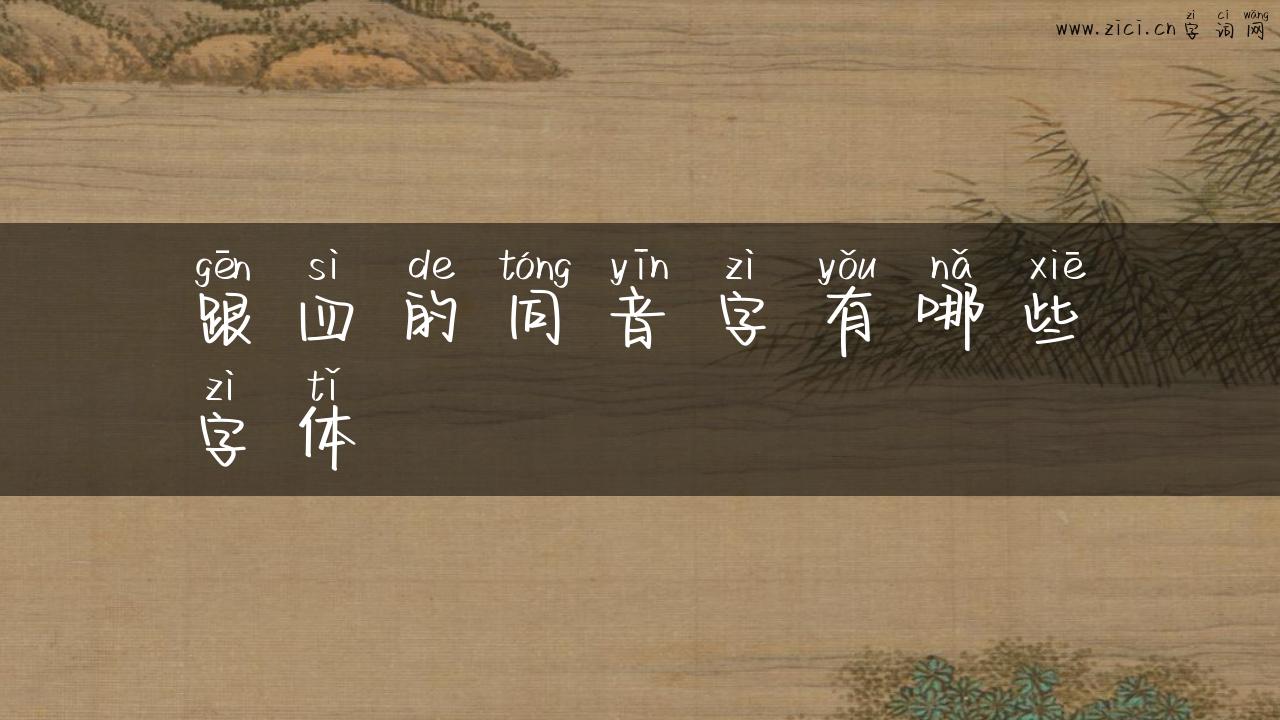 zì cí wǎng
www.zici.cn 字词网
gēn sì de tóng yīn zì yǒu nǎ xiē
跟四的同音字有哪些
zì tǐ
字体